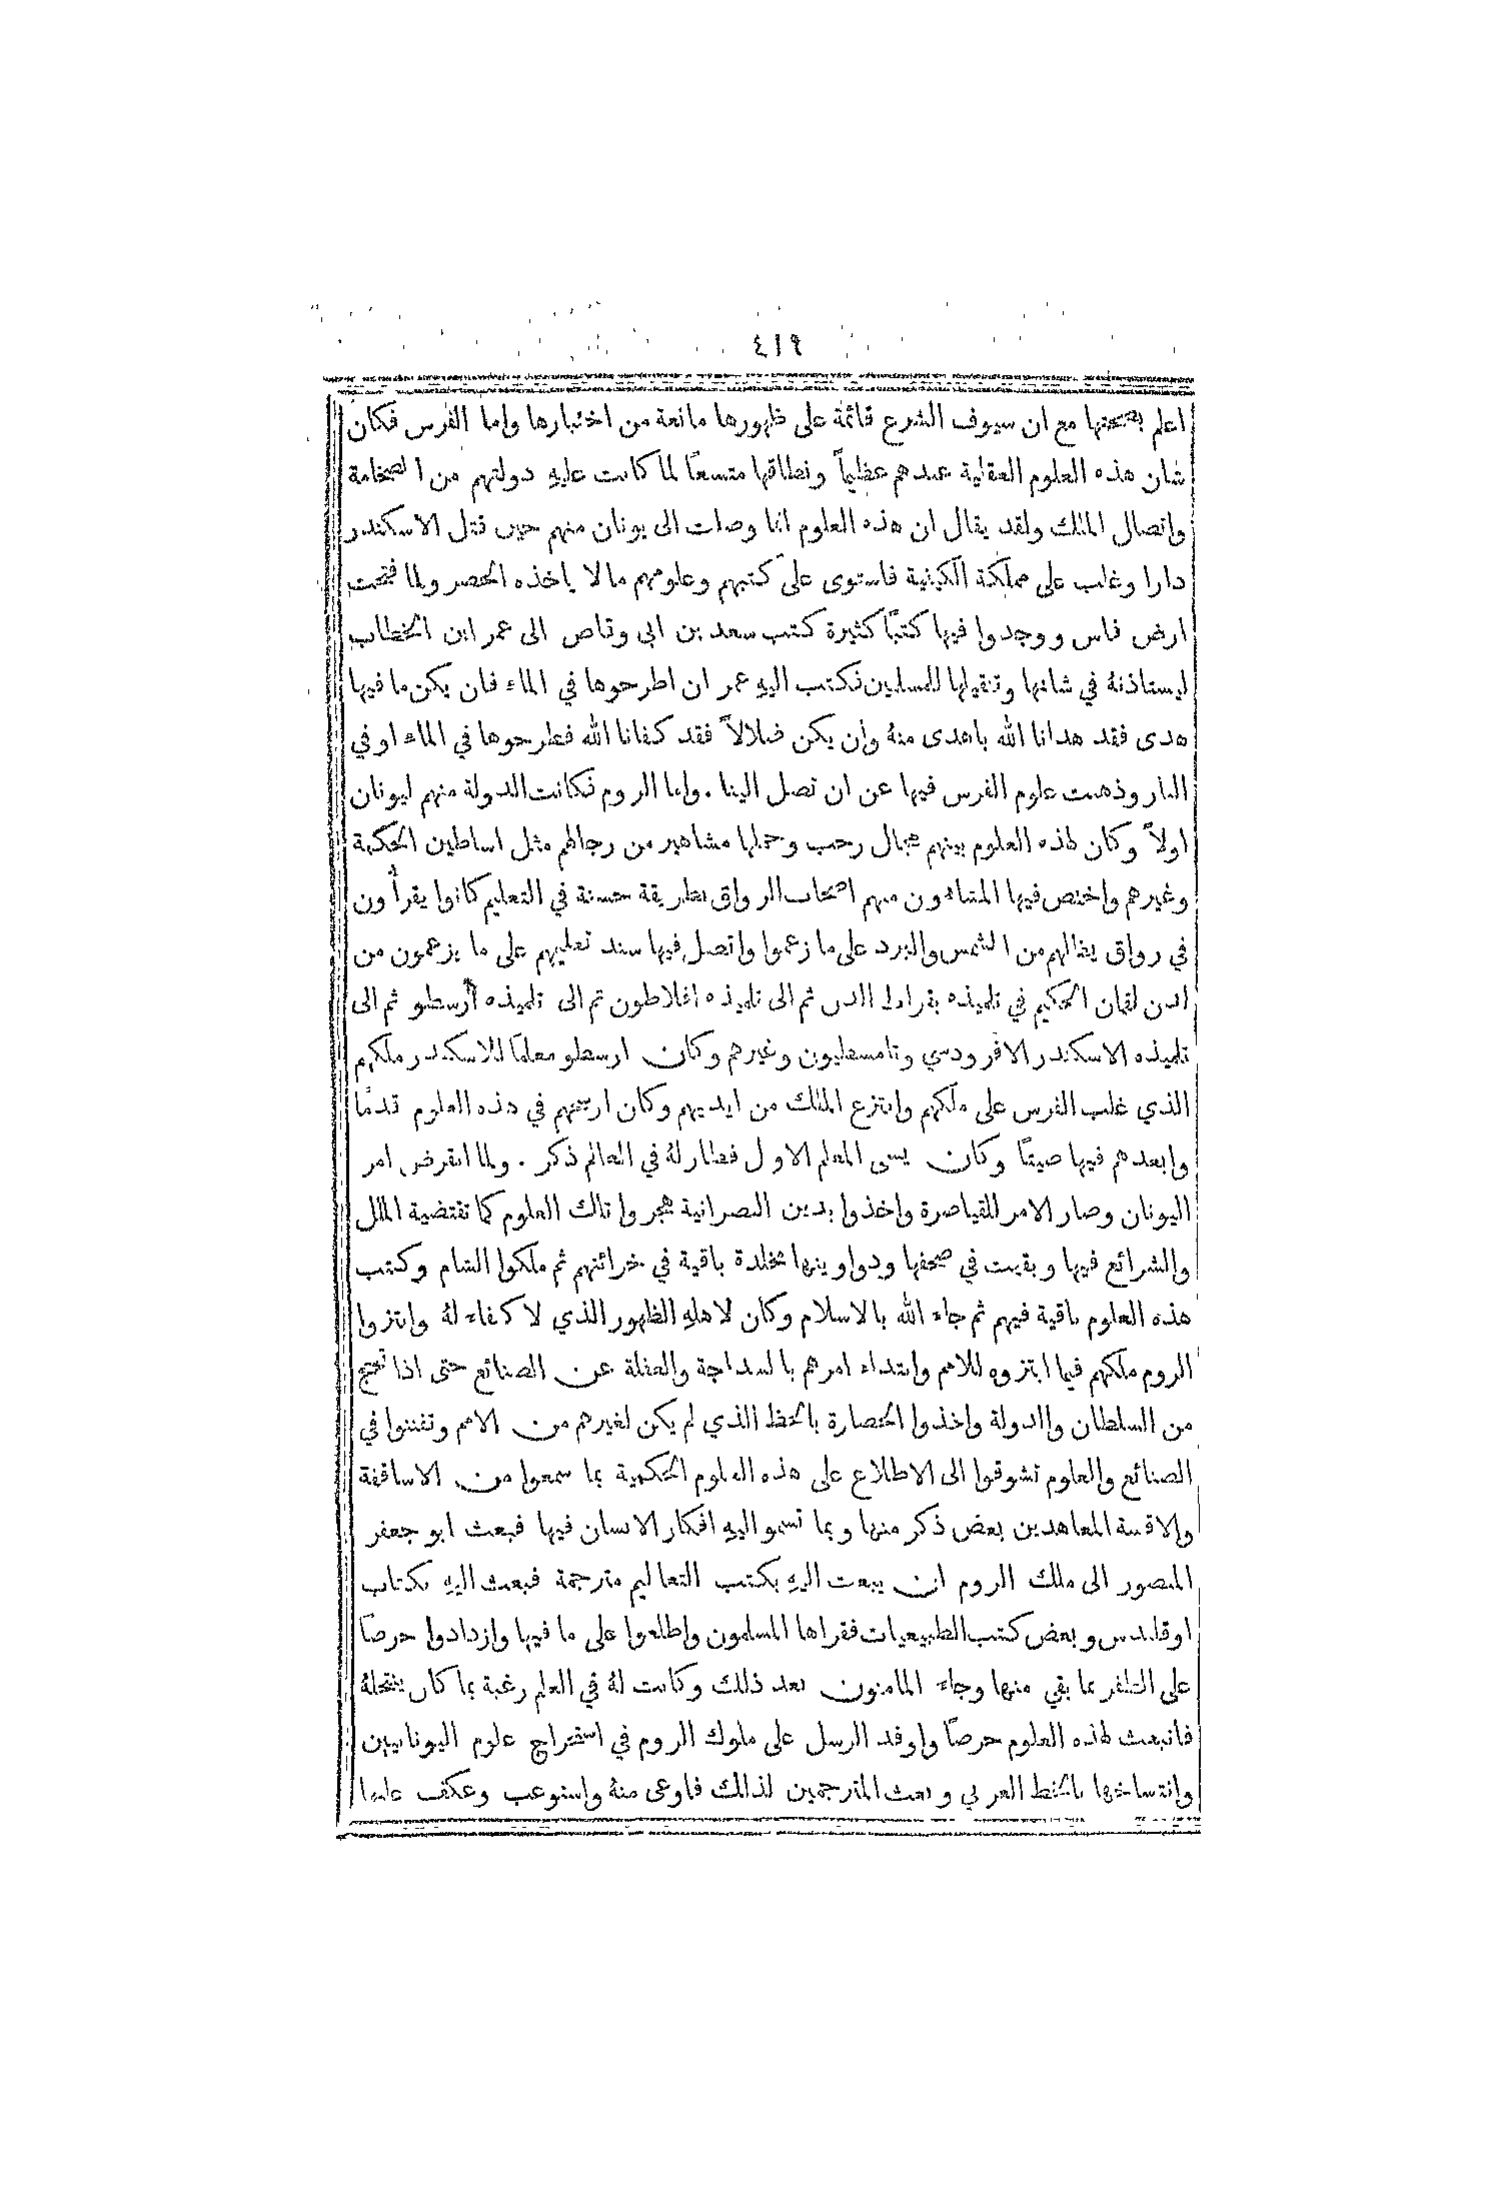 ٤١٩
اعلم بصحتها مع ان سيوف الشرع قائمة على ظهورها مانعة من اختبارها واما الفرس فكان
شان هذه العلوم العقلية عندهم عظيماً ونطاقها متسعًا لما كانت عليهِ دولتهم من الضخامة
واتصال الملك ولقد يقال ان هذه العلوم انما وصلت الى يونان منهم حين قتل الاسكندر
دارا وغلب على مملكة الكينية فاستوى على كتبهم وعلومهم ما لا ياخذه الحصر ولما فتحت
ارض فاس ووجدوا فيها كتبًا كثيرة كتب سعد بن ابي وقاص الى عمر ابن الخطاب
ليستاذنهُ في شانها وتنقيلها للمسلمين فكتب اليهِ عمر ان اطرحوها في الماء فان يكن ما فيها
هدى فقد هدانا الله باهدى منهُ وان يكن ضلالاً فقد كفانا الله فطرحوها في الماء او في
النار وذهبت علوم الفرس فيها عن ان تصل الينا . واما الروم فكانت الدولة منهم ليونان
اولاً وكان لهذه العلوم بينهم مجال رحب وحملها مشاهير من رجالهم مثل اساطين الحكمة
وغيرهم واختص فيها المشاءون منهم اصحاب الرواق بطريقة حسنة في التعليم كانوا يقرأون
في رواق يظلهم من الشمس والبرد على ما زعموا واتصل فيها سند تعليمهم على ما يزعمون من
لدن لقمان الحكيم في تلميذه بقراط الدن ثم الى تلميذه افلاطون ثم الى تلميذه أرسطو ثم الى
تلميذه الاسكندر الافرودسي وتامسطيون وغيرهم وكان ارسطو معلمًا للاسكندر ملكهم
الذي غلب الفرس على ملكهم وانتزع الملك من ايديهم وكان ارسخهم في هذه العلوم قدمًا
وابعدهم فيها صيتًا وكان يسمى المعلم الاول فطار لهُ في العالم ذكر . ولما انقرض امر
اليونان وصار الامر للقياصرة واخذوا بدين النصرانية هجروا تلك العلوم كما تقتضية الملل
والشرائع فيها وبقيت في صحفها ودواوينها مخلدة باقية في خزائنهم ثم ملكوا الشام وكتب
هذه العلوم باقية فيهم ثم جاء الله بالاسلام وكان لاهلهِ الظهور الذي لا كفاء لهُ وابتزوا
الروم ملكهم فيما ابتزوه للامم وابتداء امرهم بالسذاجة والغفلة عن الصنائع حتى اذا تبحبح
من السلطان والدولة واخذوا الحضارة بالحظ الذي لم يكن لغيرهم من الامم وتفننوا في
الصنائع والعلوم تشوقوا الى الاطلاع على هذه العلوم الحكمية بما سمعوا من الاساقفة
والاقسة المعاهدين بعض ذكر منها وبما تسمو اليهِ افكار الانسان فيها فبعث ابو جعفر
المنصور الى ملك الروم ان يبعث اليهِ بكتب التعاليم مترجمة فبعث اليهِ بكتاب
اوقليدس وبعض كتب الطبيعيات فقراها المسلمون واطلعوا على ما فيها وازدادوا حرصًا
على الظفر بما بقي منها وجاء المامنون بعد ذلك وكانت لهُ في العلم رغبة بما كان ينتحلهُ
فانبعث لهذه العلوم حرصًا واوفد الرسل على ملوك الروم في استخراج علوم اليونانيين
وانتساخها بالخط العربي وبعث المترجمين لذلك فاوعى منهُ واستوعب وعكف عليها